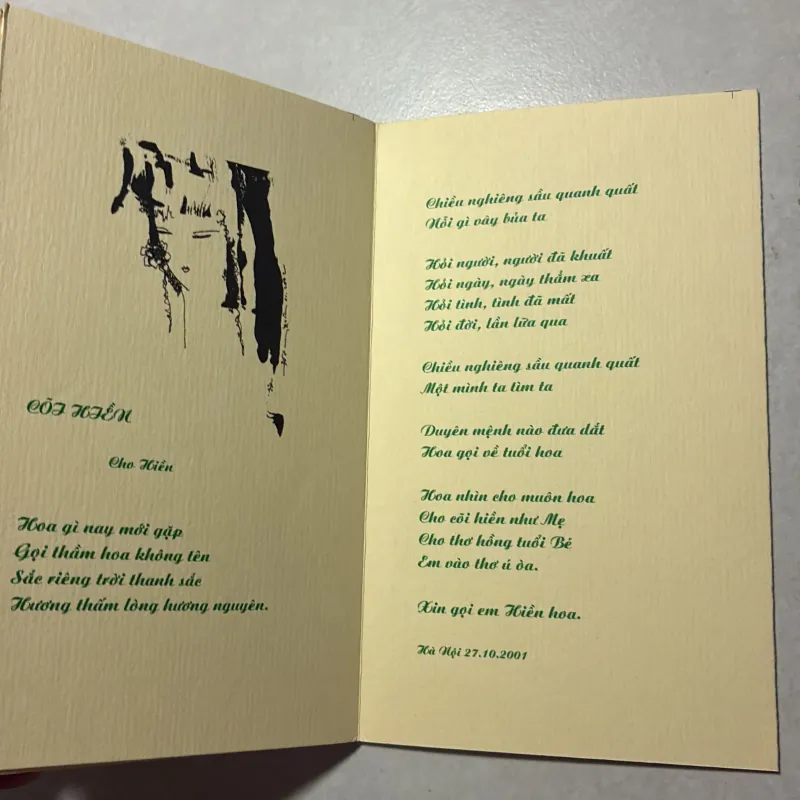 CÕI HIỀN
Cho Hiền
Hoa gì nay mới gặp
Gọi thầm hoa không tên
Sắc riêng trời thanh sắc
Hương thấm lòng hương nguyên.
Chiều nghiêng sầu quanh quất
Nỗi gì vây bủa ta
Hỏi người, người đã khuất
Hỏi ngày, ngày thẳm xa
Hỏi tình, tình đã mất
Hỏi đời, lần lữa qua
Chiều nghiêng sầu quanh quất
Một mình ta tìm ta
Duyên mệnh nào đưa dắt
Hoa gọi về tuổi hoa
Hoa nhìn cho muôn hoa
Cho cõi hiền như Mẹ
Cho thơ hồng tuổi Bé
Em vào thơ ú òa.
Xin gọi em Hiền hoa.
Hà Nội 27.10.2001